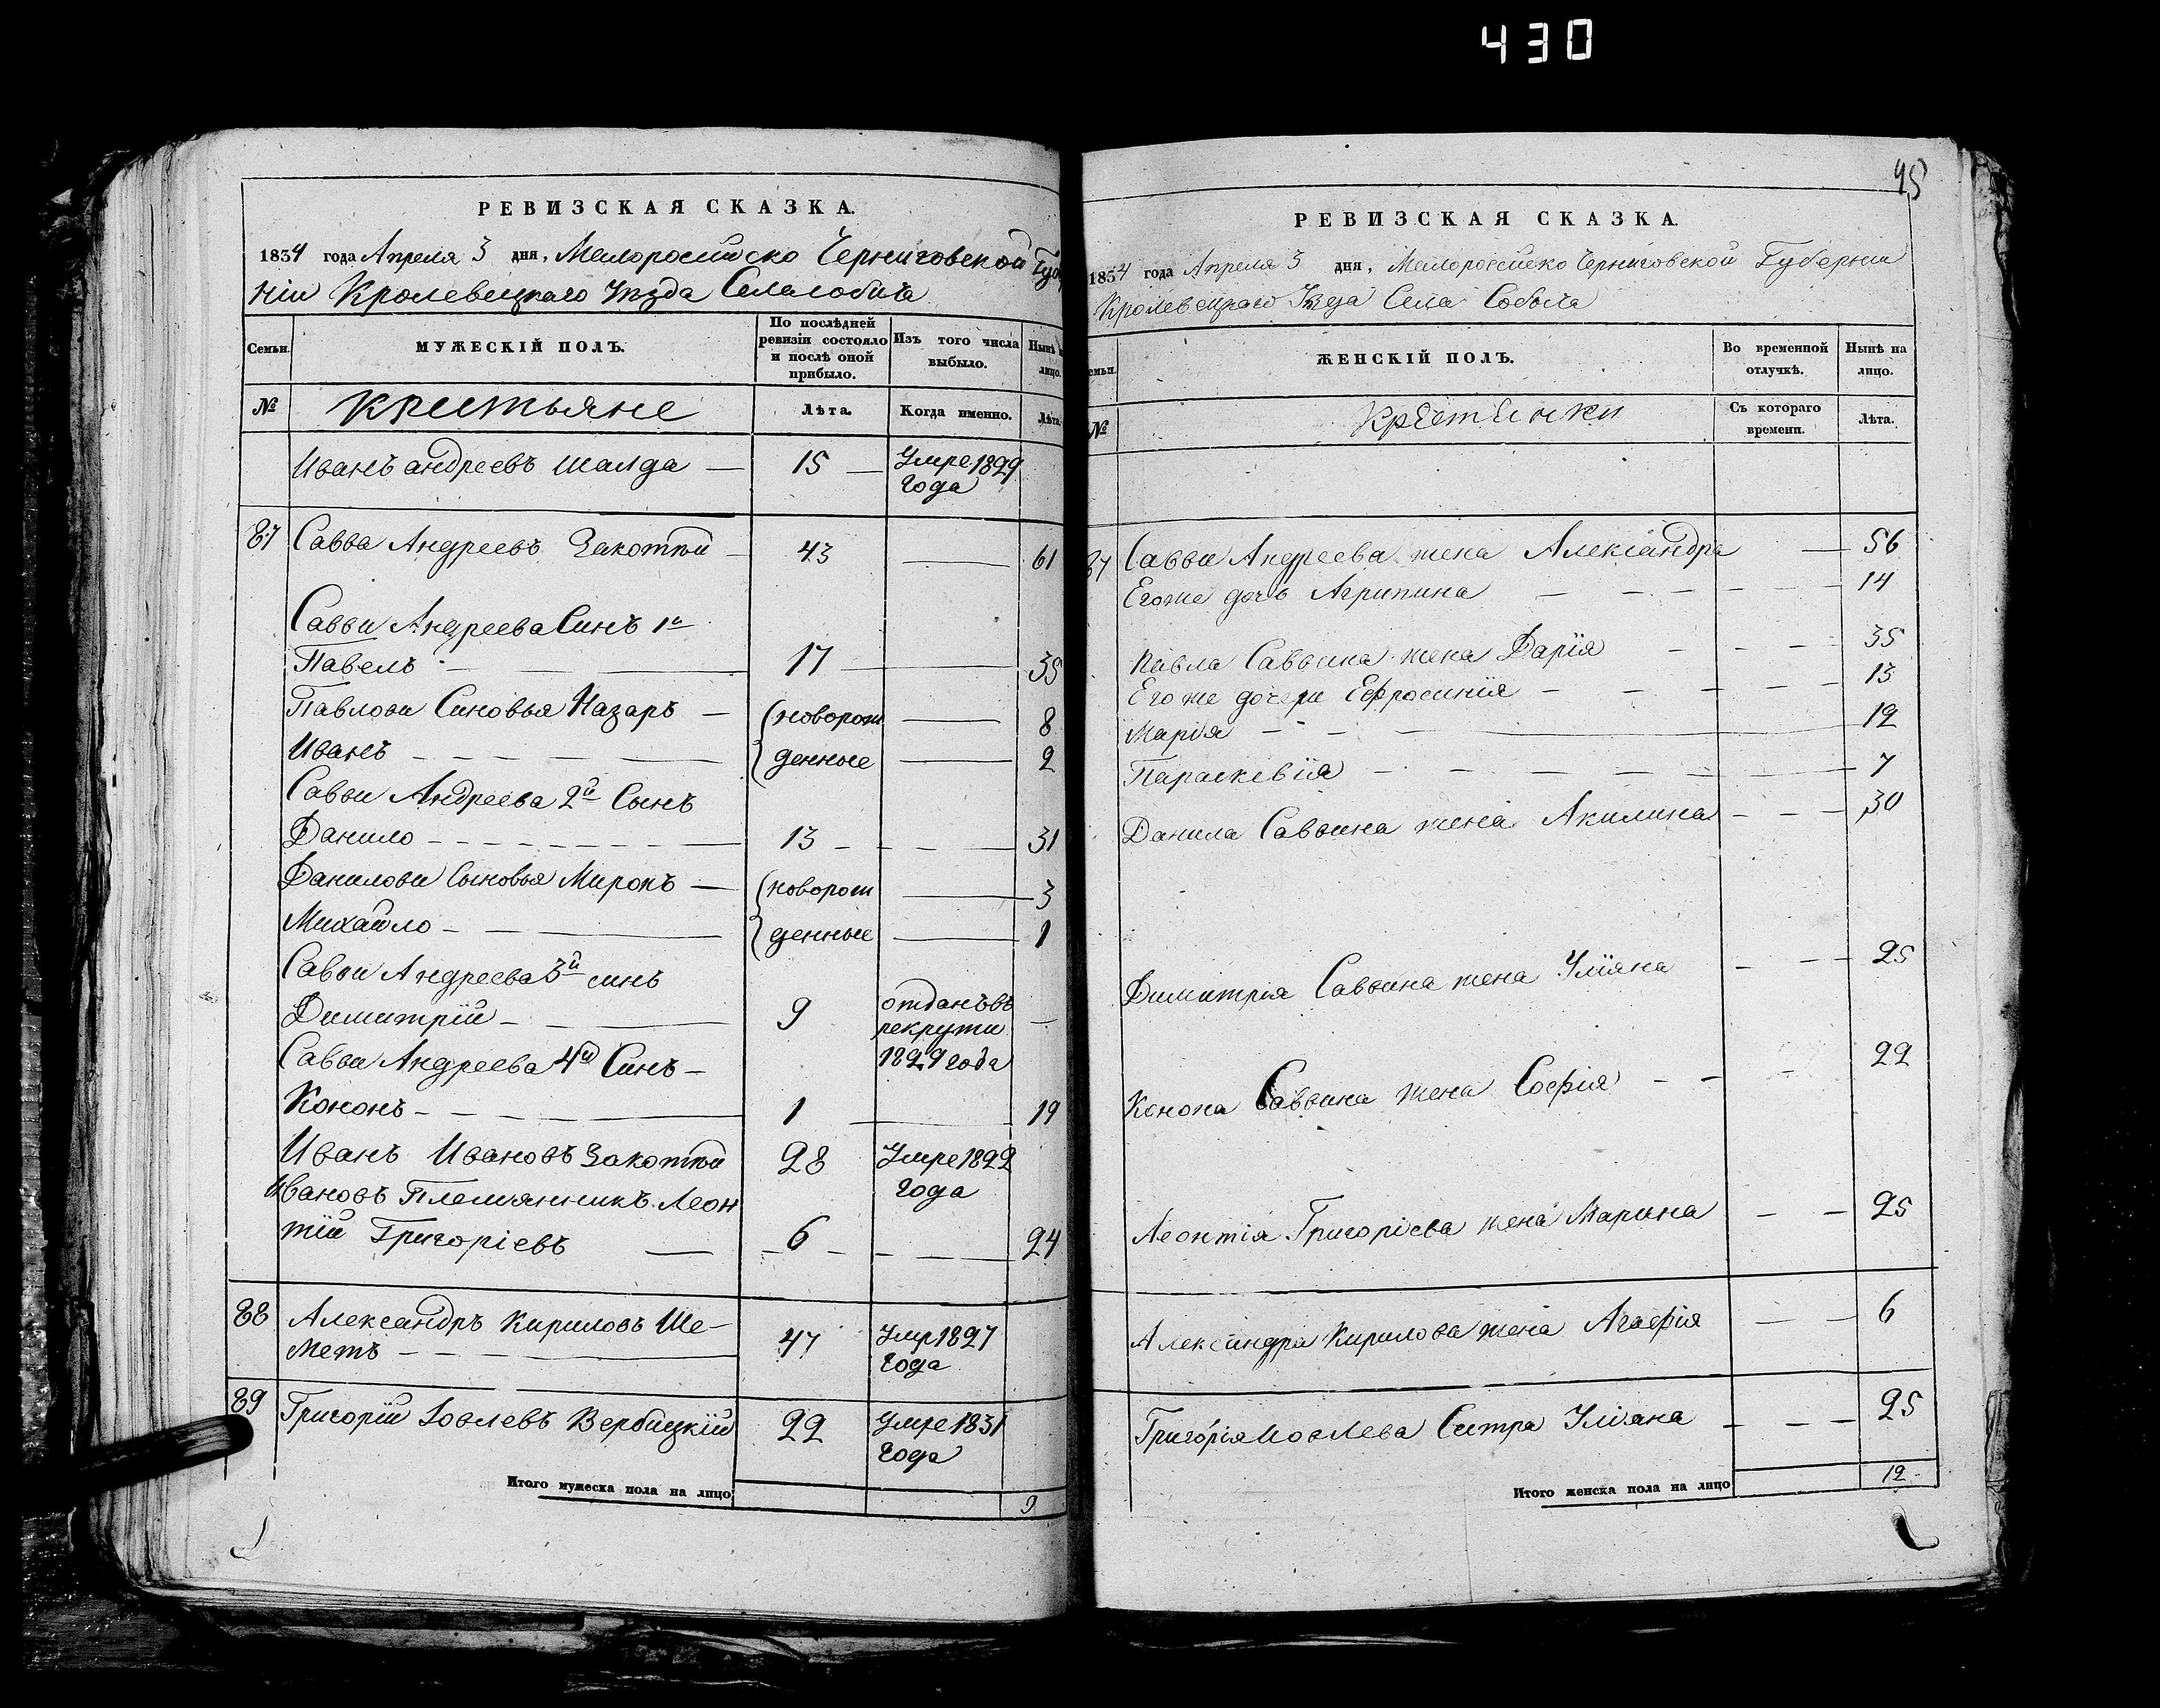 430
РЕВИЗСКАЯ СКАЗКА.
1834 года Апреля 3 дня, Малоросийско Черниговской Губ
ніи Кролевецкаго Уезда Села Собича
Семьи. МУЖЕСКІЙ ПОЛЪ. По послѣдней ревизіи состояло и послѣ оной прибыло. Изъ того числа выбыло. Нынѣ на лицо.
№ Крестьяне Лѣта. Когда именно. Лѣта.
Иванъ андреевъ шалда — 15 — Умре 1829
года
87 Савва Андреевъ Закотній — 43 — 61
Саввы Андреева Синъ 1й
Павелъ — 17 — 35
Павлови Синовья Назаръ — (новорож — 8
Иванъ — } денные — 2
Саввы Андреева 2й Сынъ
Данило — 13 — 31
Данилови Сыновья Миронъ — (новорож — 3
Михайло — } денные — 1
Саввы Андреева 3й синъ
Димитрій — 9 отданъ въ —
рекрути
Саввы Андреева 4й Синъ — 1829 года
Кононъ — 1 — 19
Иванъ Ивановъ Закотній 28 Умре 1822
года
Ивановъ Племянникъ Леон
тій Григоріевъ — 6 — 24
88 Александръ Кириловъ Ше-
метъ — 47 Умр 1827
года
89 Григорій Іовлевъ Вербицкій 22 Умре 1831
года
Итого мужеска пола на лицо 9
45
РЕВИЗСКАЯ СКАЗКА.
1834 года Апреля 3 дня, Малоросійско Черниговской Губернии
Кролевецкаго Уезда Села Собыча
емьи. ЖЕНСКІЙ ПОЛЪ. Во временной отлучкѣ. Нынѣ на лицо.
№ Съ котораго времени. Лѣта.
87 Саввы Андреева жена Александра — 56
Егоже дочь Агрипина — 14
Павла Саввина жена Дарія — 35
Его же дочери Ефросинія — 13
Марія — 12
Параскевія — 7
Данила Саввина жена Акилина — 30
Димитрія Саввина жена Уліяна — 25
Конона Саввина жена Софія — 22
Леонтія Григоріева жена Марина — 25
Александра Кирилова жена Агафія — 6
Григорія Иовлева Систра Уліана — 25
Итого женска пола на лицо 12